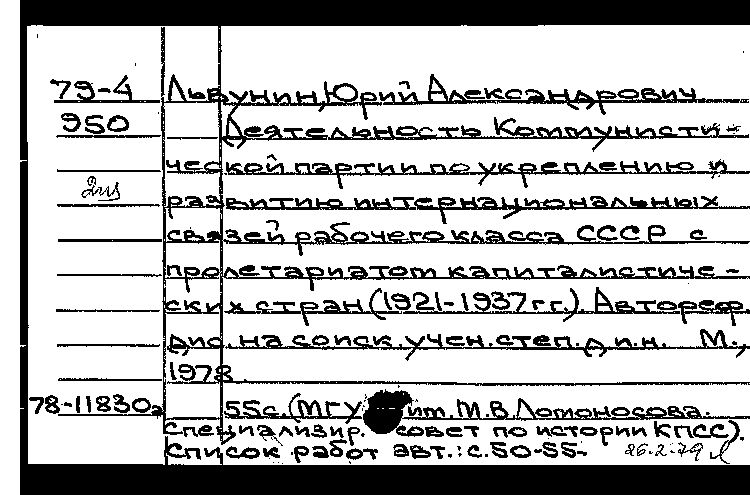 79-4 Львунин, Юрий Александрович
950 Деятельность Коммунисти-
ческой партии по укреплению и
развитию интернациональных
связей рабочего класса СССР с
пролетариатом капиталистиче-
ских стран (1921-1937 гг.). Автореф.
дис. на соиск. учен. степ. д.и.н. М.,
1978.
78-11830а 55с. (МГУ им. М.В. Ломоносова.
Специализир. совет по истории КПСС).
Список работ авт.: с. 50-55.
26.2.79